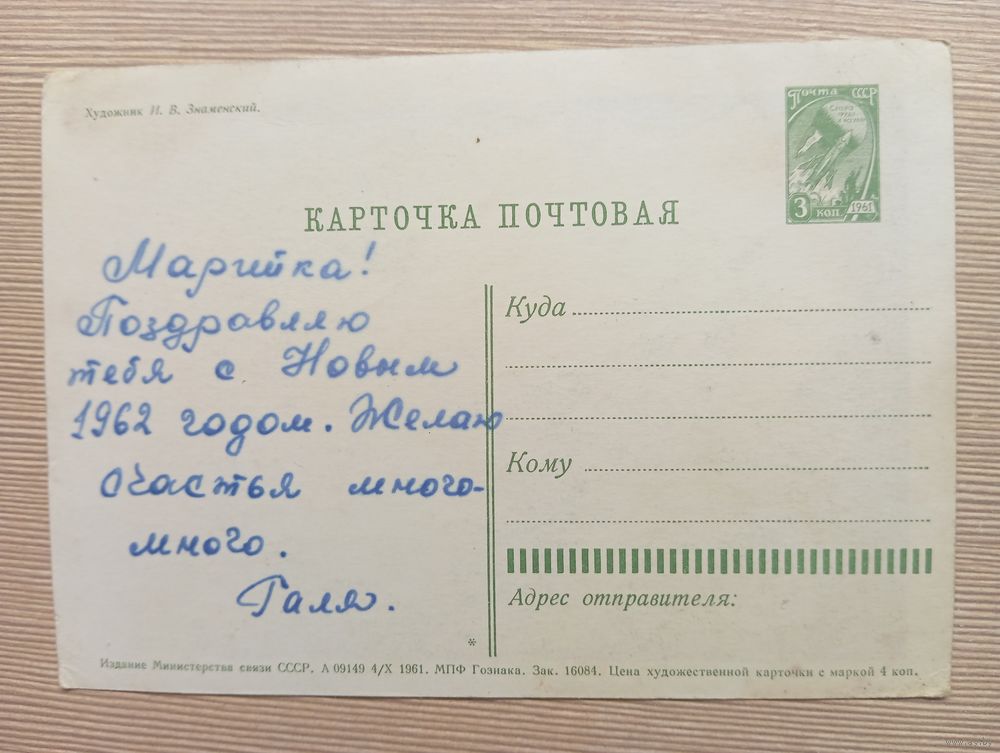 Художник И. В. Знаменский.
Почта СССР
3 коп 1961
КАРТОЧКА ПОЧТОВАЯ
Марийка!
Поздравляю
тебя с Новым
1962 годом. Желаю
счастья много-
много.
Галя.
Куда
Кому
Адрес отправителя:
*
Издание Министерства связи СССР. А 09149 4/X 1961. МПФ Гознака. Зак. 16084. Цена художественной карточки с маркой 4 коп.